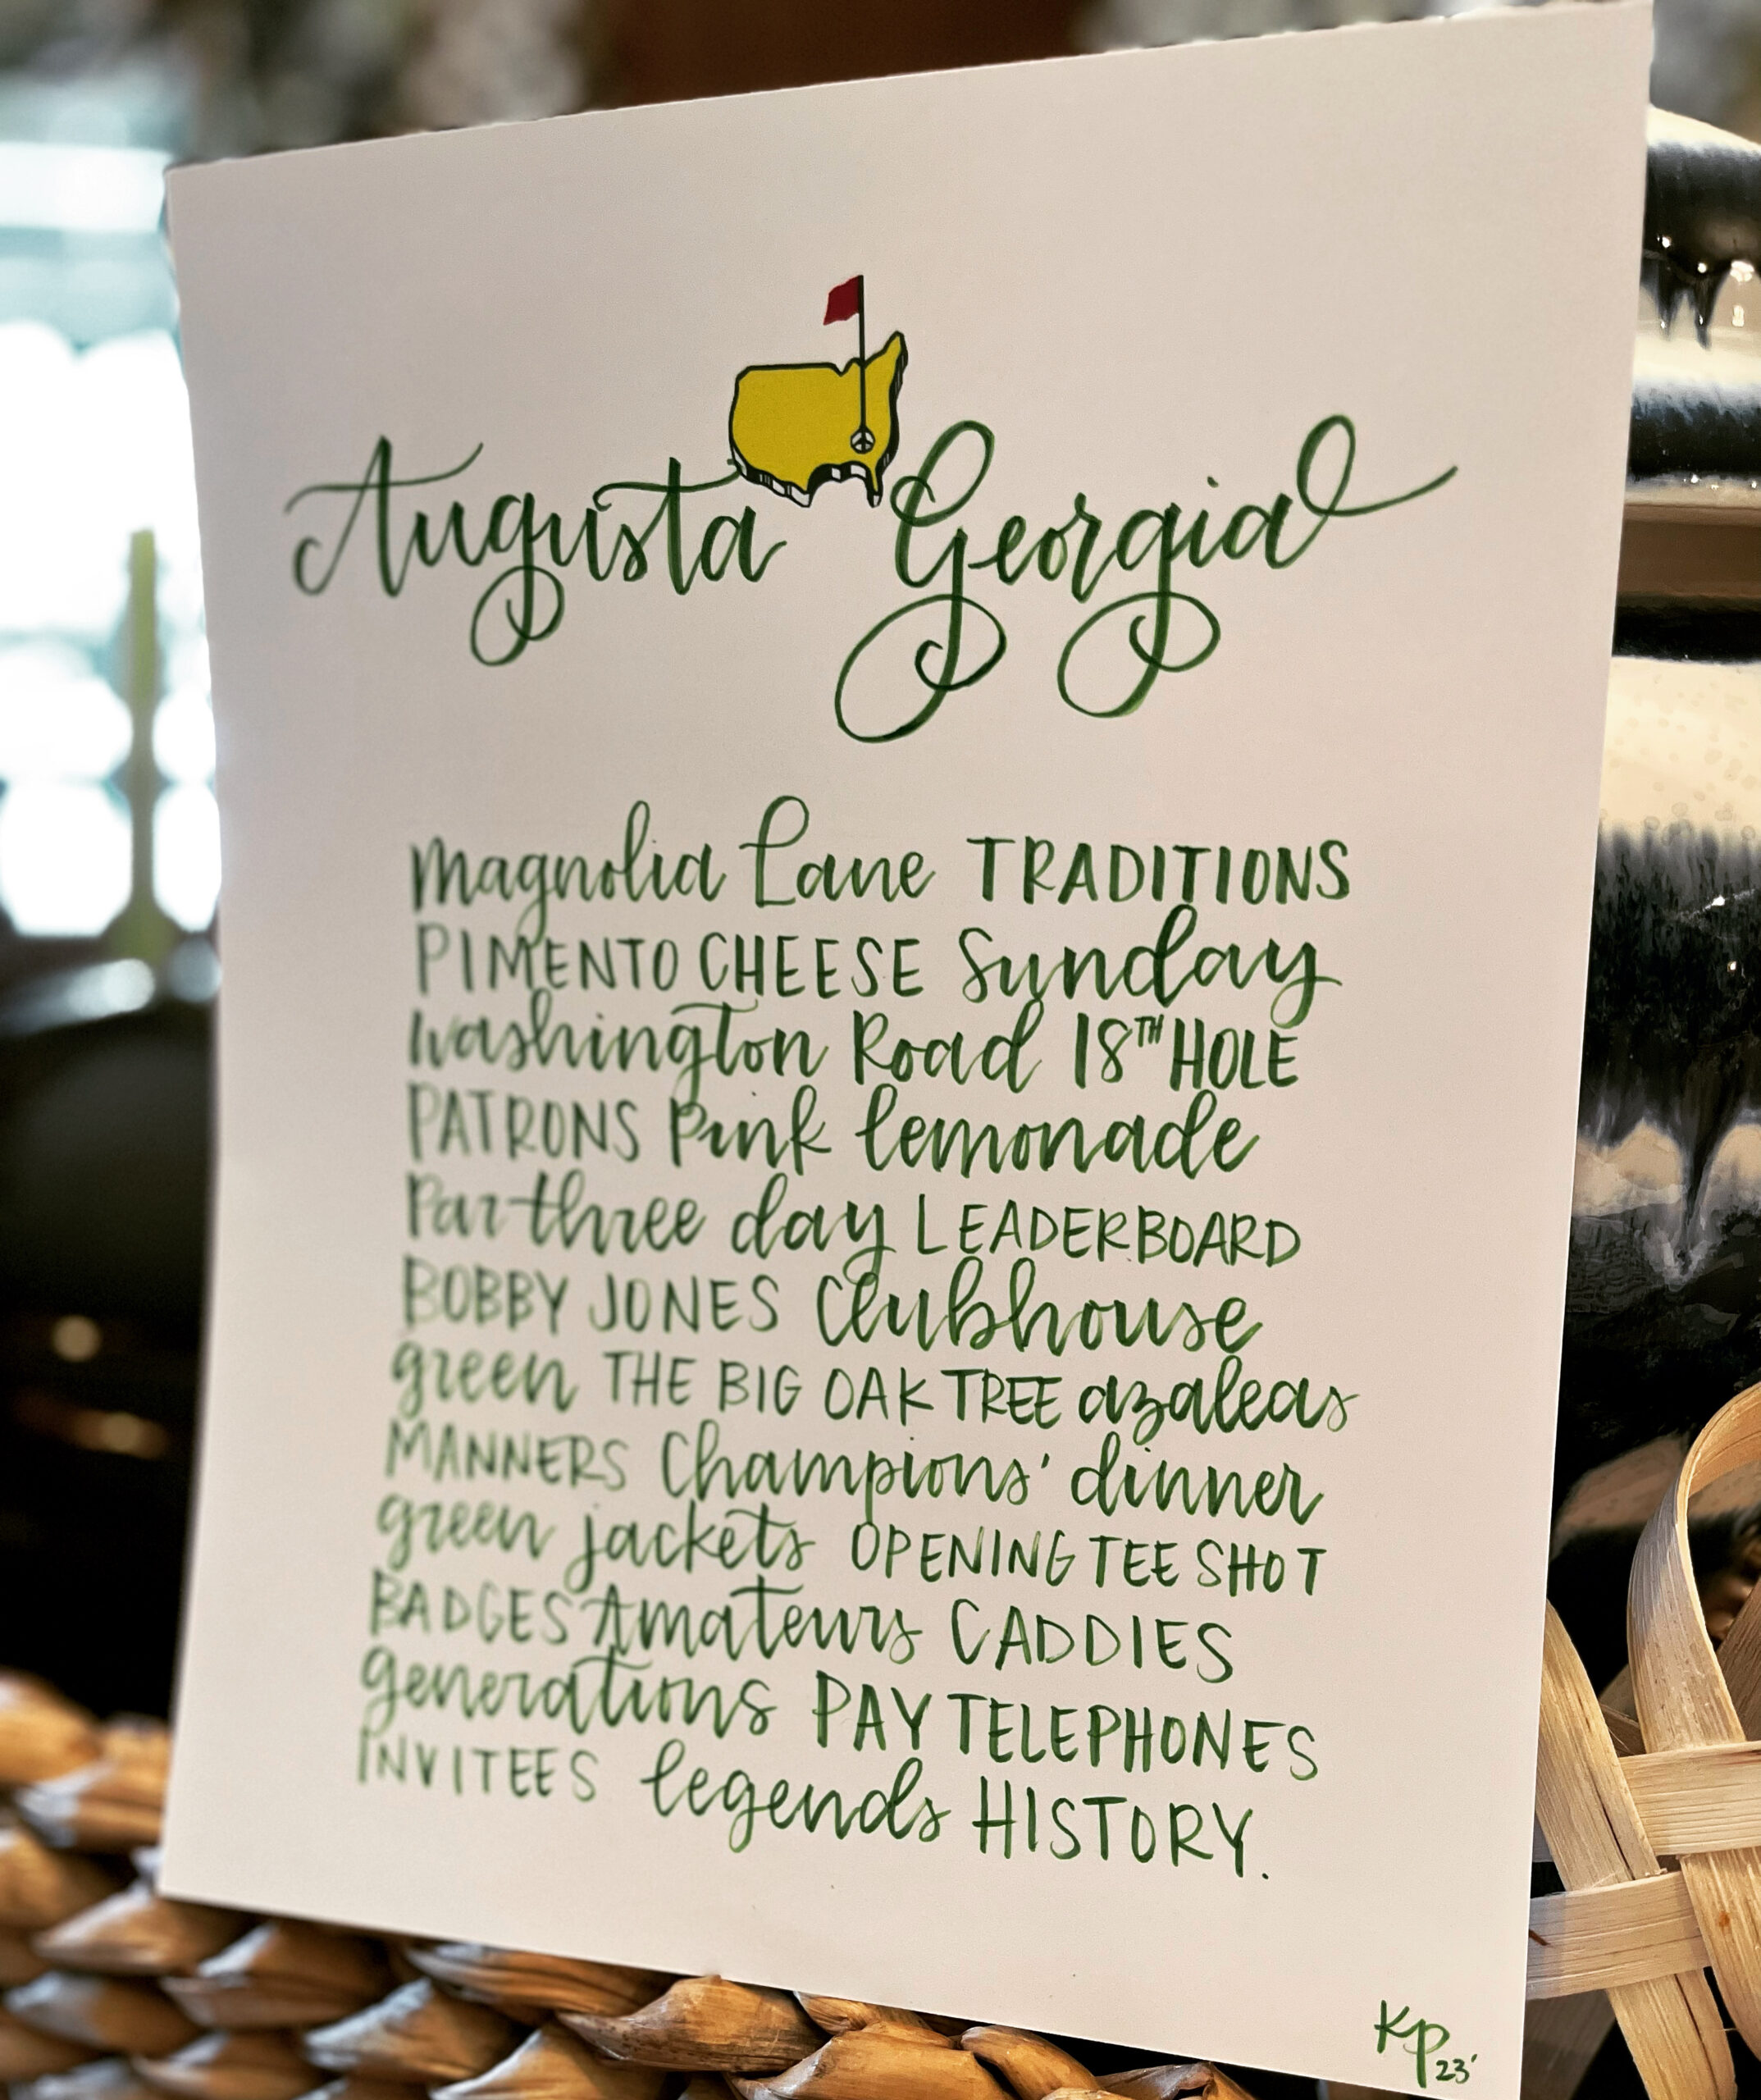 Augusta Georgia
Magnolia Lane TRADITIONS
PIMENTO CHEESE Sunday
Washington Road 18TH HOLE
PATRONS Pink lemonade
Par three day LEADERBOARD
BOBBY JONES Clubhouse
green THE BIG OAK TREE azaleas
MANNERS Champions' dinner
green jackets OPENING TEE SHOT
BADGES Amateurs CADDIES
generations PAY TELEPHONES
INVITEES legends HISTORY.
KP 23'